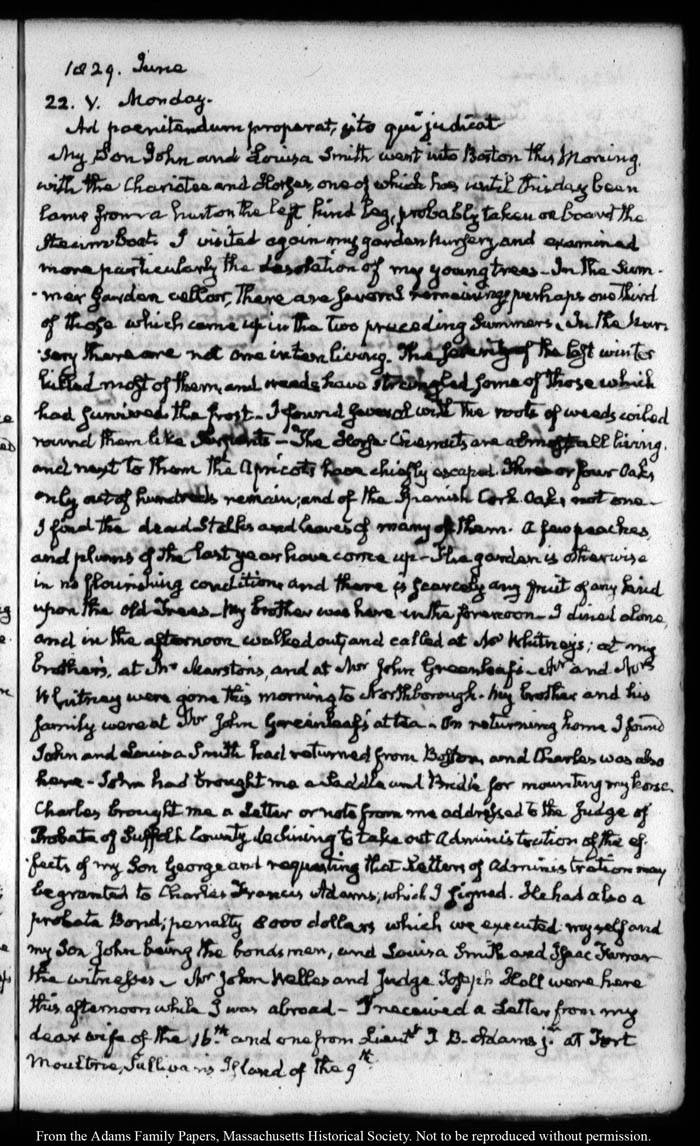 1829. June
22. V. Monday.
Ad poenitendum properat, cito qui judicat
My Son John and Louisa Smith went into Boston this Morning.
with the Chariotee and Horses, one of which has until this day been
lame from a hurt on the left hind leg, probably taken on board the
Steam Boat. I visited again my garden Nursery, and examined
more particularly the desolation of my young trees – In the Sum-
-mer Garden cellar, there are several remaining, perhaps one third
of those which came up in the two preceding Summers. In the Nur-
sery there are not one in ten living. The severity of the last winter
killed most of them, and weeds have strangled some of those which
had survived the frost – I found several with the roots of weeds coiled
round them like Serpents – The Horse Chesnuts are almost all living,
and next to them the Apricots have chiefly escaped. Three or four Oaks
only out of hundreds remain; and of the Spanish Cork Oaks not one –
I find the dead Stalks and leaves of many of them. A few peaches
and plums of the last year have come up – The garden is otherwise
in no flourishing condition, and there is scarcely any fruit of any kind
upon the old Trees – My brother was here in the forenoon – I dined alone,
and in the afternoon walked out, and called at Mr Whitney's; at my
brother's, at Marston's, and at Mr John Greenleaf's – Mr and Mrs
Whitney were gone this morning to Northborough. My brother and his
family were at Mr John Greenleaf's at tea – On returning home I found
John and Louisa Smith had returned from Boston, and Charles was also
here – John had brought me a Saddle and Bridle for mounting my horse.
Charles brought me a Letter or note from me addressed to the Judge of
Probate of Suffolk County declining to take out Administration of the ef-
-fects of my Son George and requesting that Letters of Administration may
be granted to Charles Francis Adams; which I signed. He had also a
probate Bond; penalty 8000 dollars which we executed: myself and
my Son John being the bondsmen, and Louisa Smith and Isaac Farrar
the witnesses – Mr John Welles and Judge Joseph Hall were here
this afternoon while I was abroad – I received a Letter from my
dear wife of the 16th and one from Lieutt J. B. Adams jr. at Fort
Moultrie, Sullivan's Island of the 9th
From the Adams Family Papers, Massachusetts Historical Society. Not to be reproduced without permission.